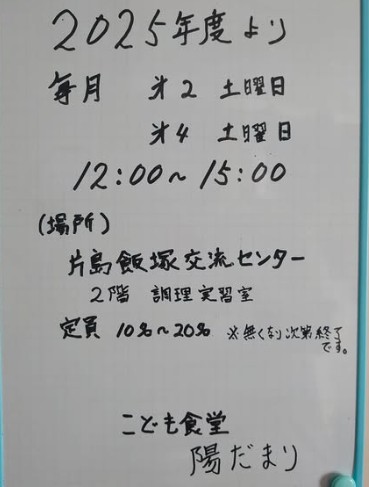 2025年度より
毎月 第2 土曜日
第4 土曜日
12:00~15:00
(場所)
片島飯塚交流センター
2階 調理実習室
定員 10%~20% ※無くなり次第終了
です。
こども食堂
陽だまり